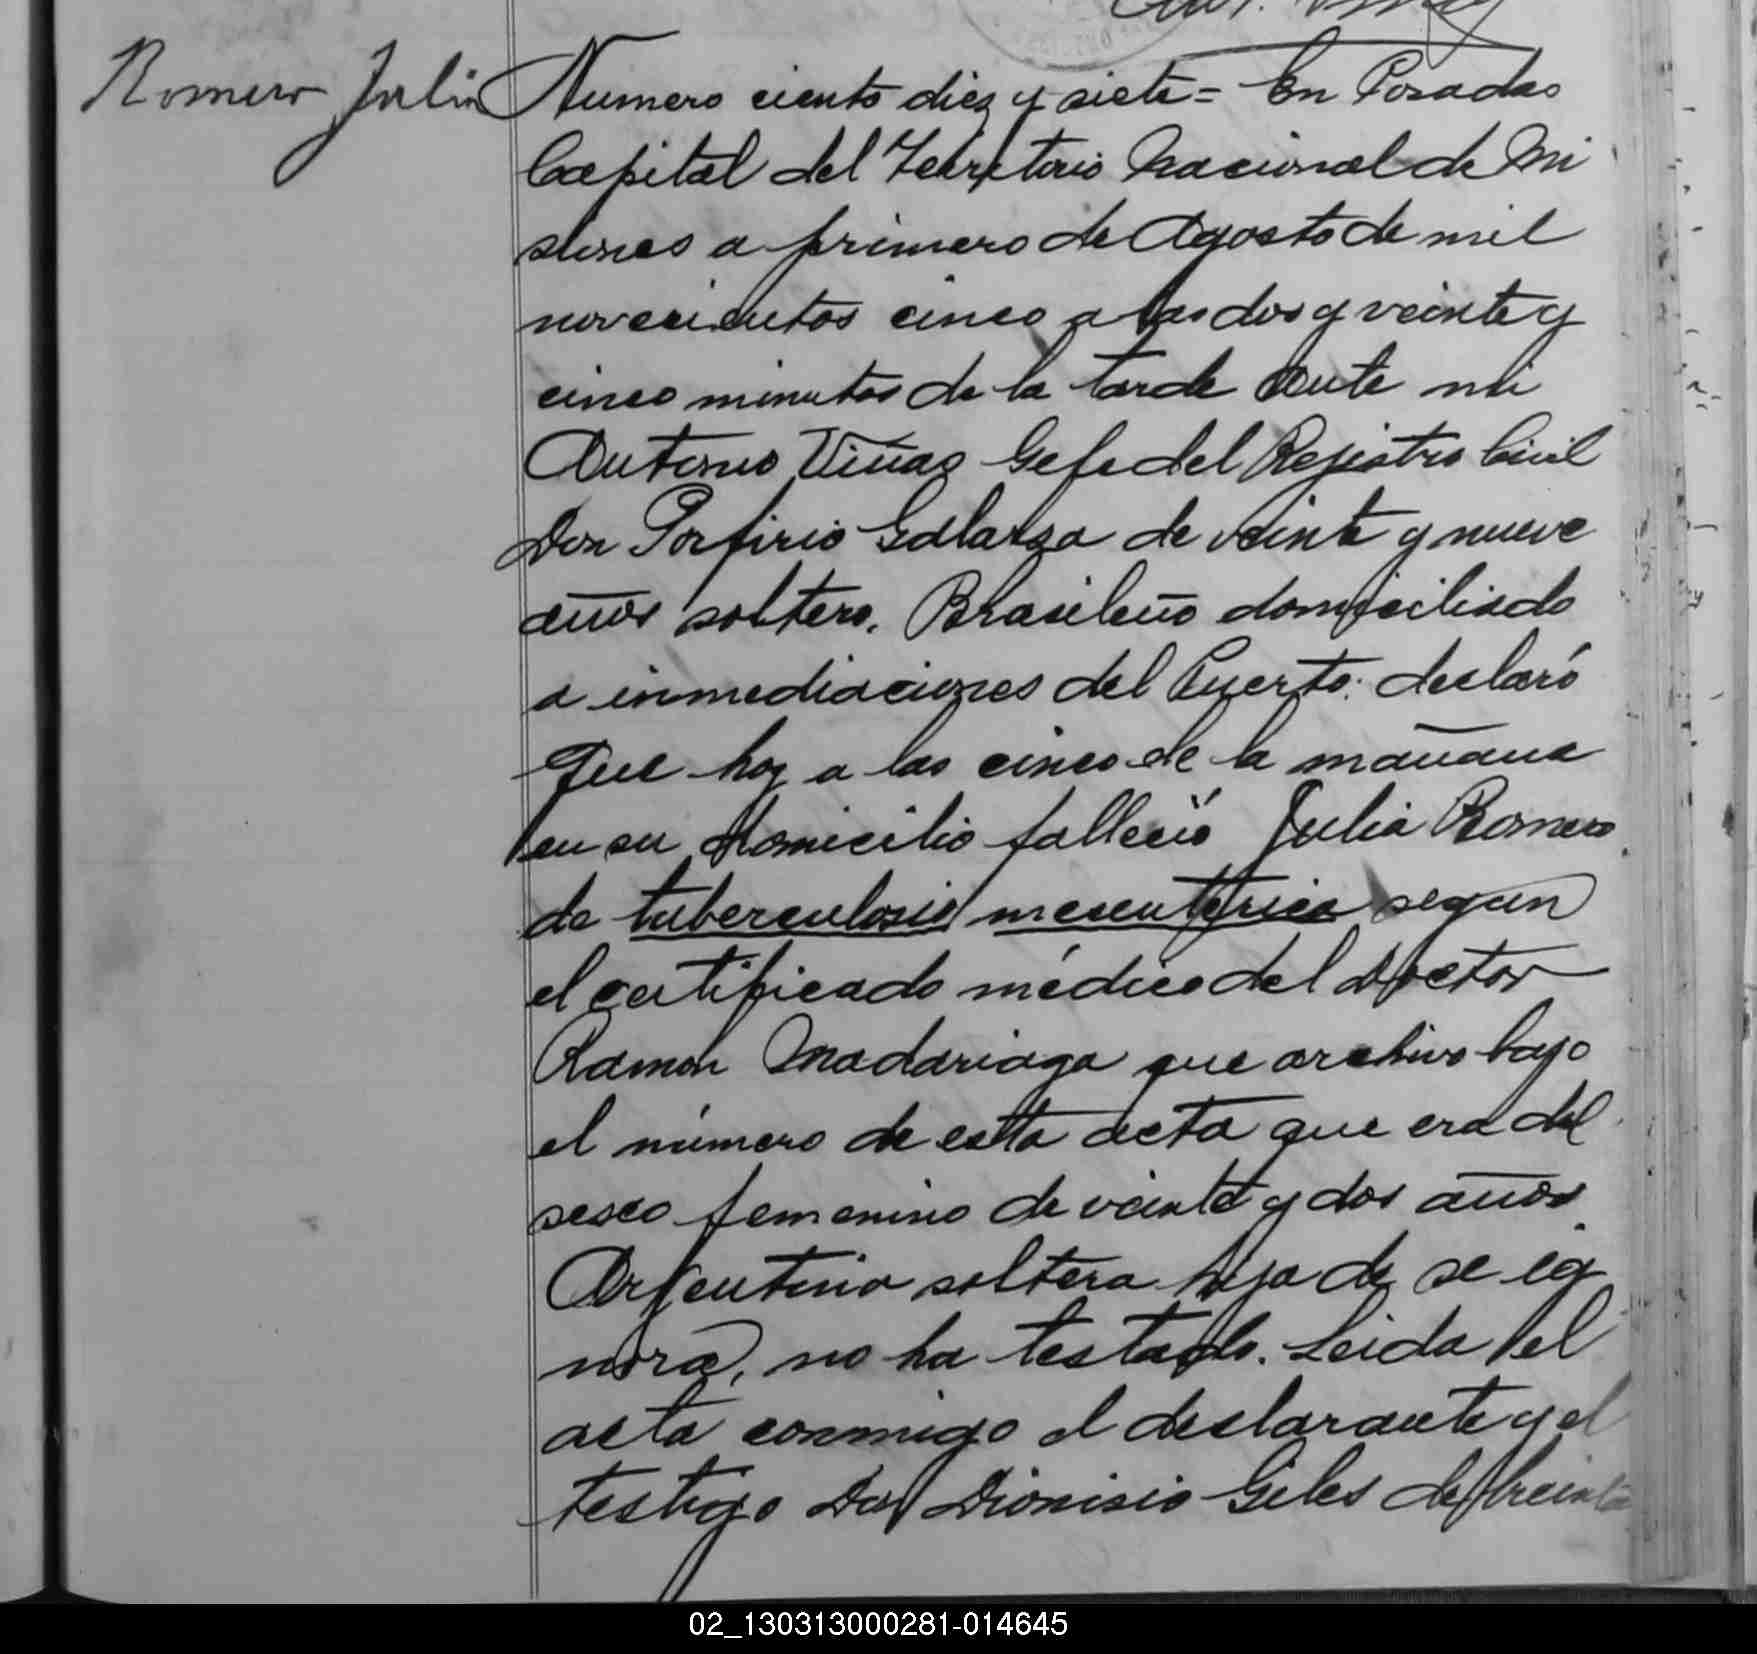 Romero Julia
Numero ciento diez y siete = En Posadas
Capital del Territorio Nacional de Mi
siones a primero de Agosto de mil
novecientos cinco a las dos y veinte y
cinco minutos de la tarde Ante mi
Antonio Viñas Gefe del Rejistro Civil
Don Porfirio Galarza de veinte y nueve
años soltero, Brasileño domiciliado
a inmediaciones del Puerto: declaró
Que hoy a las cinco de la mañana
en su domicilio falleció Julia Romero
de tuberculosis mesenterica segun
el certificado médico del Doctor
Ramon Madariaga que archivo bajo
el número de esta acta que era del
sesco femenino de veinte y dos años
Argentina soltera hija de se ig
nora, no ha testado. Leida el
acta conmigo el declarante y el
testigo Don Dionisio Giles de treinta
02_130313000281-014645